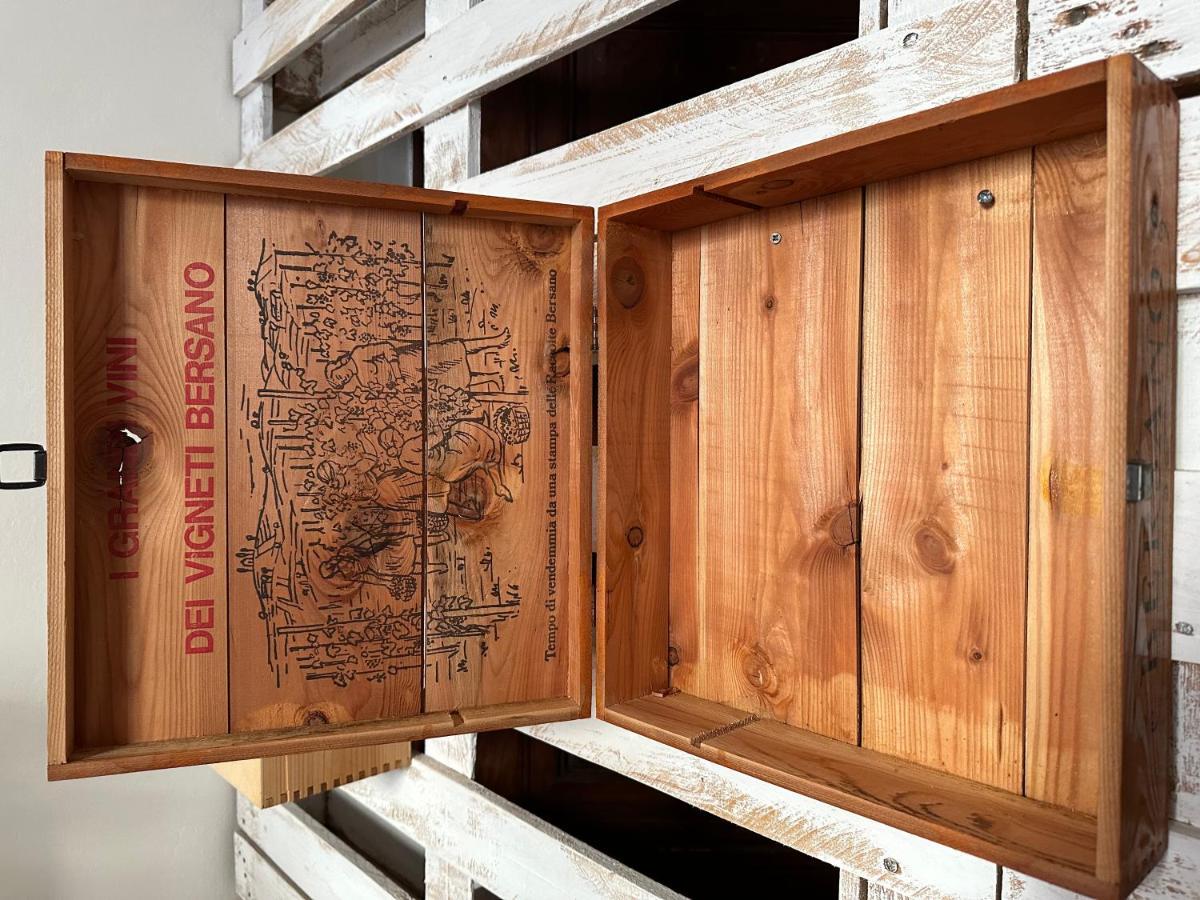 I GRANDI VINI
DEI VIGNETI BERSANO
Tempo di vendemmia da una stampa delle Raccolte Bersano